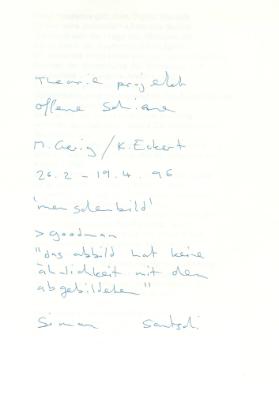 Theorie projekt
offene schiene
M. Gerig / K. Eckert
26.2 - 19.4. 96
'menschenbild'
> goodman
"das abbild hat keine
ähnlichkeit mit dem
abgebildeten"
Simon